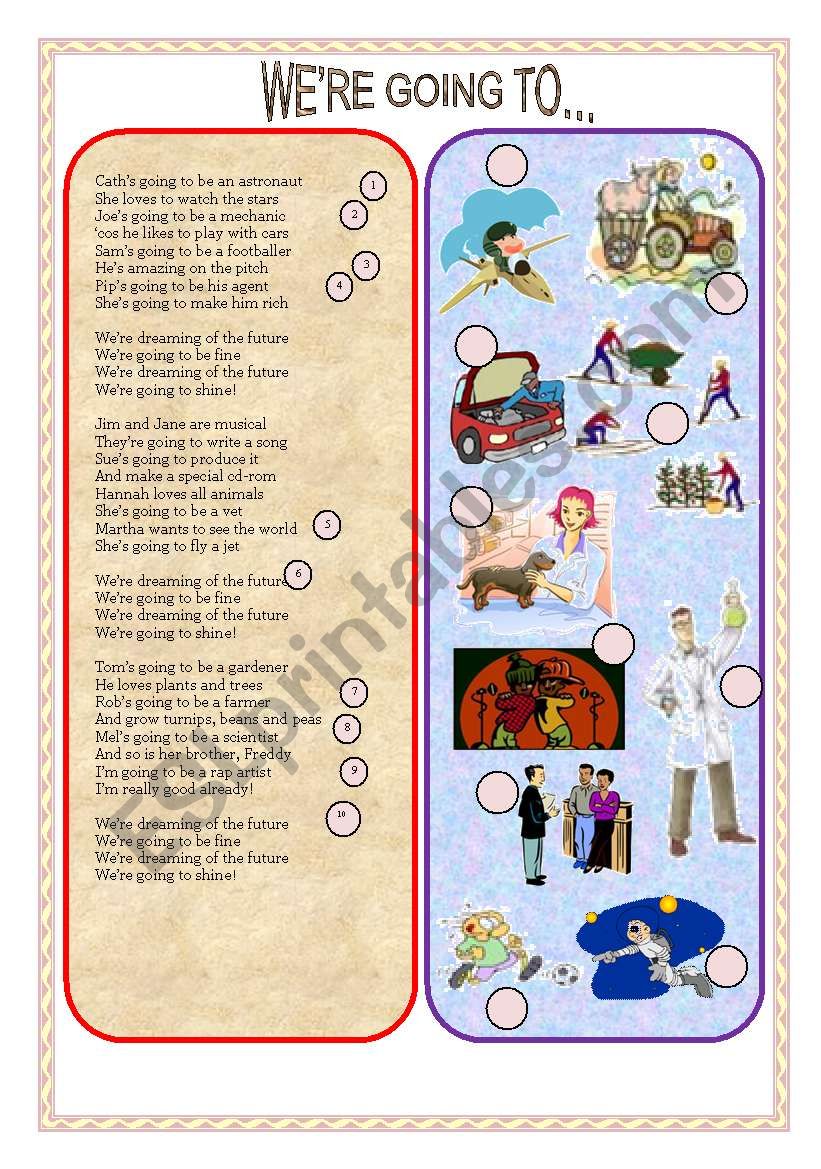 WE'RE GOING TO...
Cath's going to be an astronaut
1
She loves to watch the stars
Joe's going to be a mechanic
2
'cos he likes to play with cars
Sam's going to be a footballer
He's amazing on the pitch
3
Pip's going to be his agent
4
She's going to make him rich
We're dreaming of the future
We're going to be fine
We're dreaming of the future
We're going to shine!
Jim and Jane are musical
They're going to write a song
Sue's going to produce it
And make a special cd-rom
Hannah loves all animals
She's going to be a vet
Martha wants to see the world
5
She's going to fly a jet
6
We're dreaming of the future
We're going to be fine
We're dreaming of the future
We're going to shine!
Tom's going to be a gardener
He loves plants and trees
7
Rob's going to be a farmer
And grow turnips, beans and peas
8
Mel's going to be a scientist
And so is her brother, Freddy
I'm going to be a rap artist
9
I'm really good already!
10
We're dreaming of the future
We're going to be fine
We're dreaming of the future
We're going to shine!
ESLprintables.com